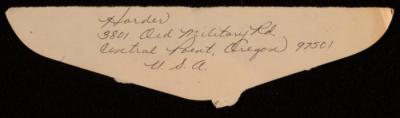 Harder
3801 Old Military Rd.
Central Point, Oregon 97501
U.S.A.